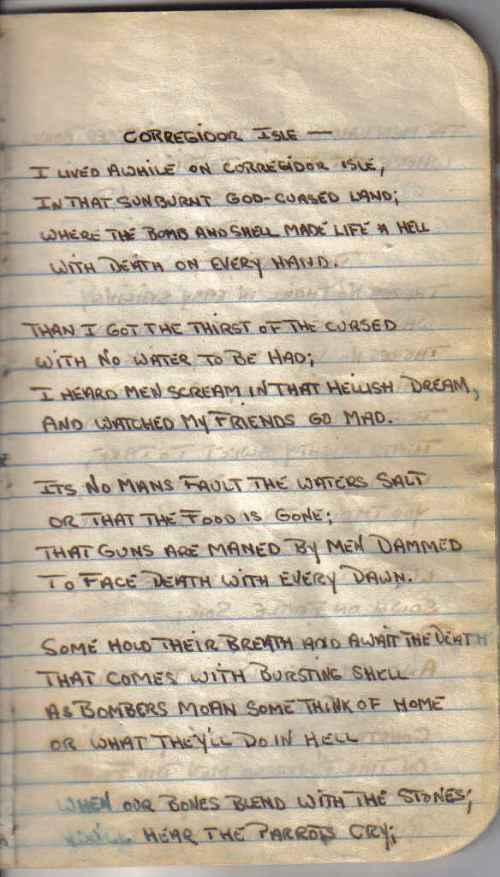 CORREGIDOR ISLE —
I LIVED AWHILE ON CORREGIDOR ISLE,
IN THAT SUNBURNT GOD-CURSED LAND;
WHERE THE BOMB AND SHELL MADE LIFE A HELL
WITH DEATH ON EVERY HAND.
THAN I GOT THE THIRST OF THE CURSED
WITH NO WATER TO BE HAD;
I HEARD MEN SCREAM IN THAT HELLISH DREAM,
AND WATCHED MY FRIENDS GO MAD.
ITS NO MANS FAULT THE WATERS SALT
OR THAT THE FOOD IS GONE;
THAT GUNS ARE MANED BY MEN DAMMED
TO FACE DEATH WITH EVERY DAWN.
SOME HOLD THEIR BREATH AND AWAIT THE DEATH
THAT COMES WITH BURSTING SHELL
AS BOMBERS MOAN SOME THINK OF HOME
OR WHAT THEY'LL DO IN HELL
WHEN OUR BONES BLEND WITH THE STONES;
YOU'LL HEAR THE PARROTS CRY;